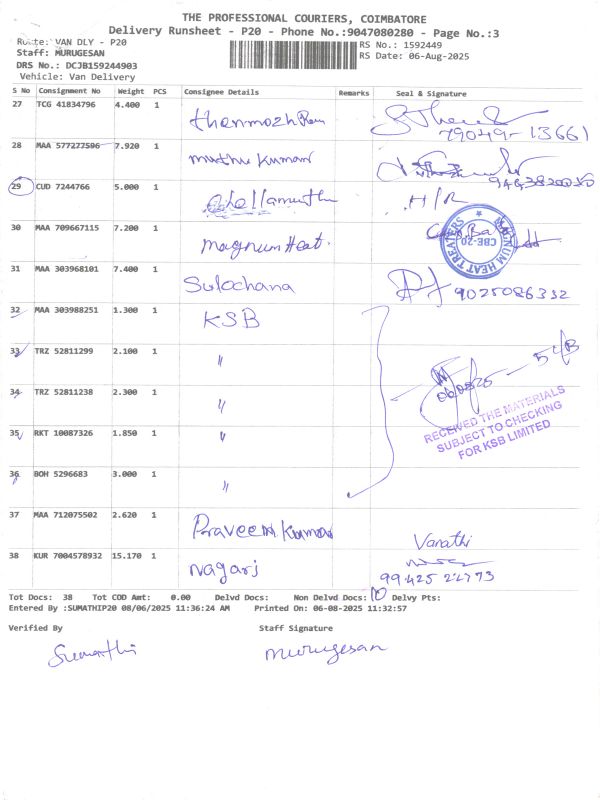 THE PROFESSIONAL COURIERS, COIMBATORE
Delivery Runsheet - P20 - Phone No.:9047080280 - Page No.:3
Route: VAN DLY - P20
RS No.: 1592449
Staff: MURUGESAN
RS Date: 06-Aug-2025
DRS No.: DCJB159244903
Vehicle: Van Delivery
S No Consignment No Weight PCS Consignee Details Remarks Seal & Signature
27 TCG 41834796 4.400 1
79049-13661
28 MAA 577277596 7.920 1 muthu kumar
29 CUD 7244766 5.000 1 chellamuthu H/R
30 MAA 709667115 7.200 1 magnum Heat.
MAGNUM HEAT TREATERS
CBE-20
31 MAA 303968101 7.400 1 Sulochana 9025086332
32 MAA 303988251 1.300 1 KSB
33 TRZ 52811299 2.100 1 "
34 TRZ 52811238 2.300 1 "
RECEIVED THE MATERIALS
SUBJECT TO CHECKING
FOR KSB LIMITED
35 RKT 10087326 1.850 1 "
36 BOH 5296683 3.000 1 "
37 MAA 712075502 2.620 1 Praveen Kumar Vanathi
38 KUR 7004578932 15.170 1 nagaraj
99425 22773
Tot Docs: 38 Tot COD Amt: 0.00 Delvd Docs: Non Delvd Docs: Delvy Pts:
Entered By :SUMATHIP20 08/06/2025 11:36:24 AM Printed On: 06-08-2025 11:32:57
Verified By Staff Signature
Sumathi murugesan